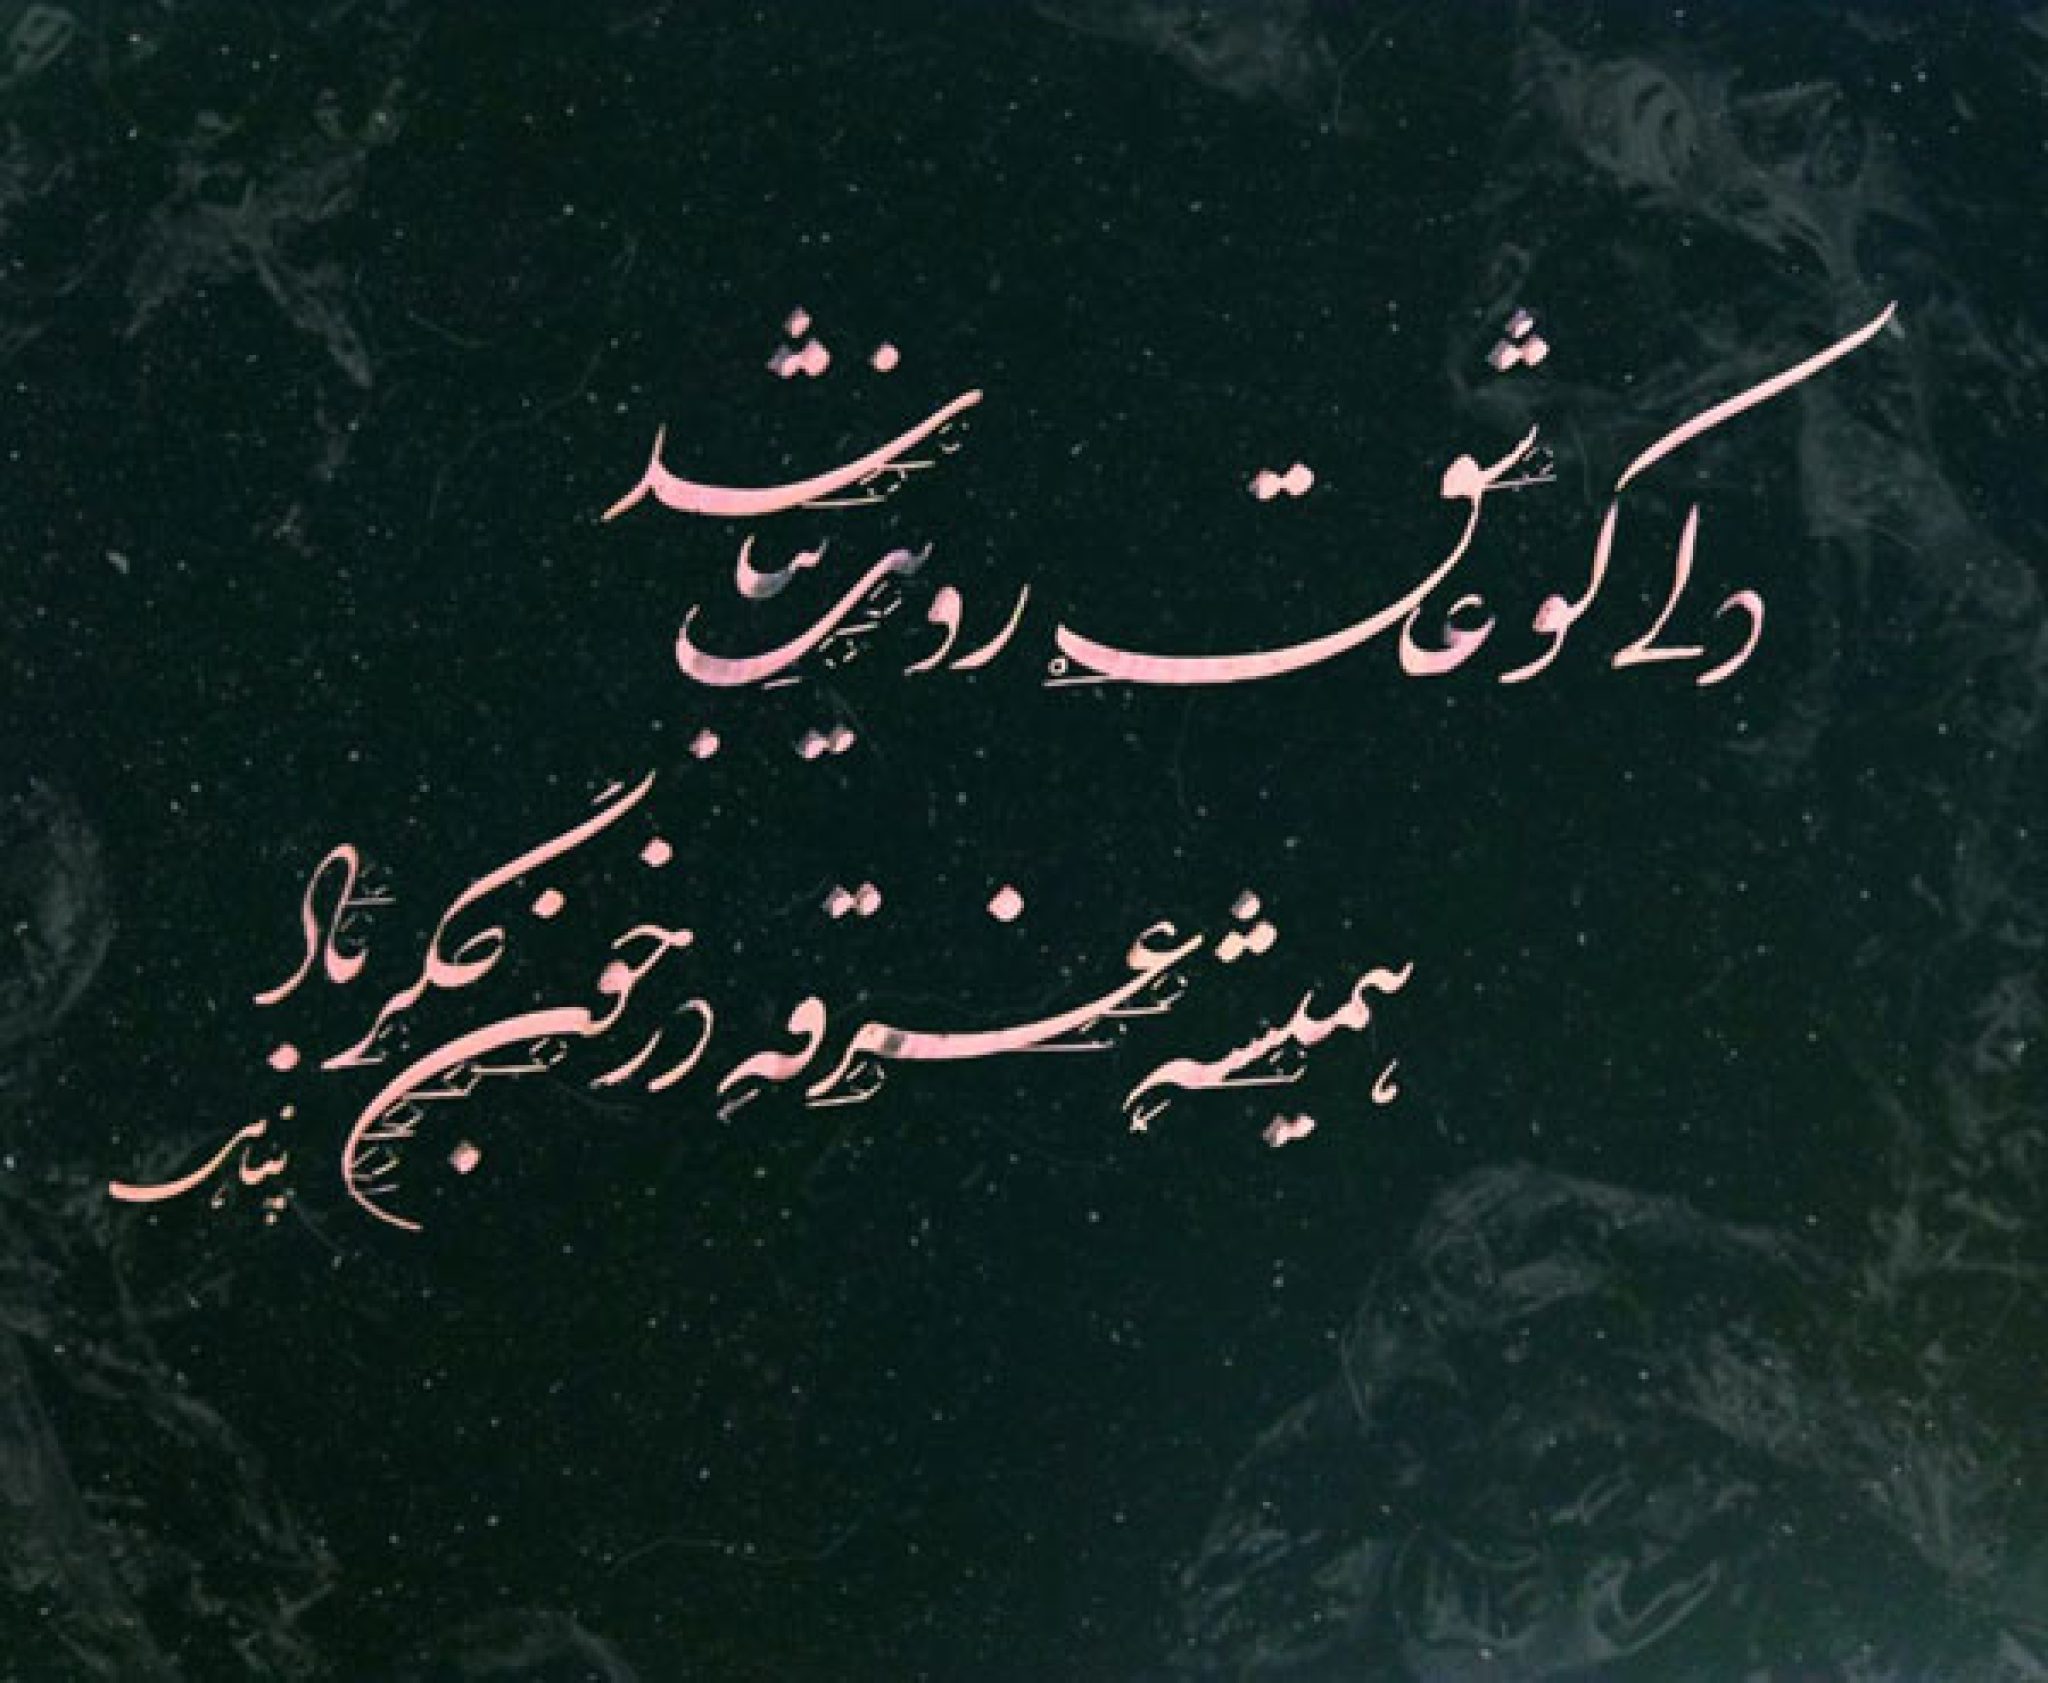 دلی کو عاشق رویت نباشد
همیشه غرقه در خون جگر باد
پناهی